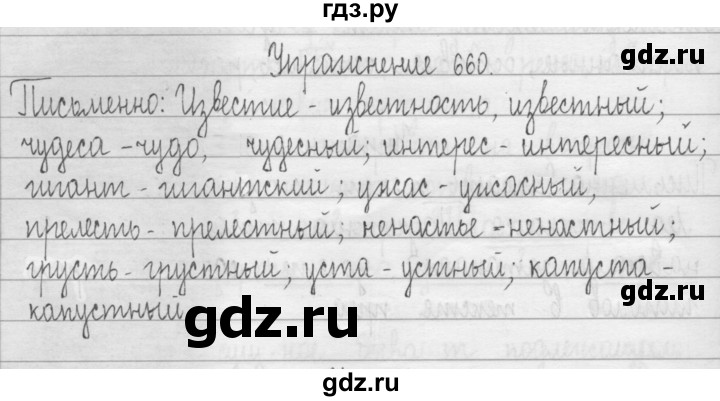 гдз.ру
gdz.ru
Упражнение 660.
Письменно: Известие - известность, известный;
чудеса - чудо, чудесный; интерес - интересный;
гигант - гигантский; ужас - ужасный;
прелесть - прелестный; ненастье - ненастный;
грусть - грустный; уста - устный; капуста -
капустный
gdz.ru
gdz.ru